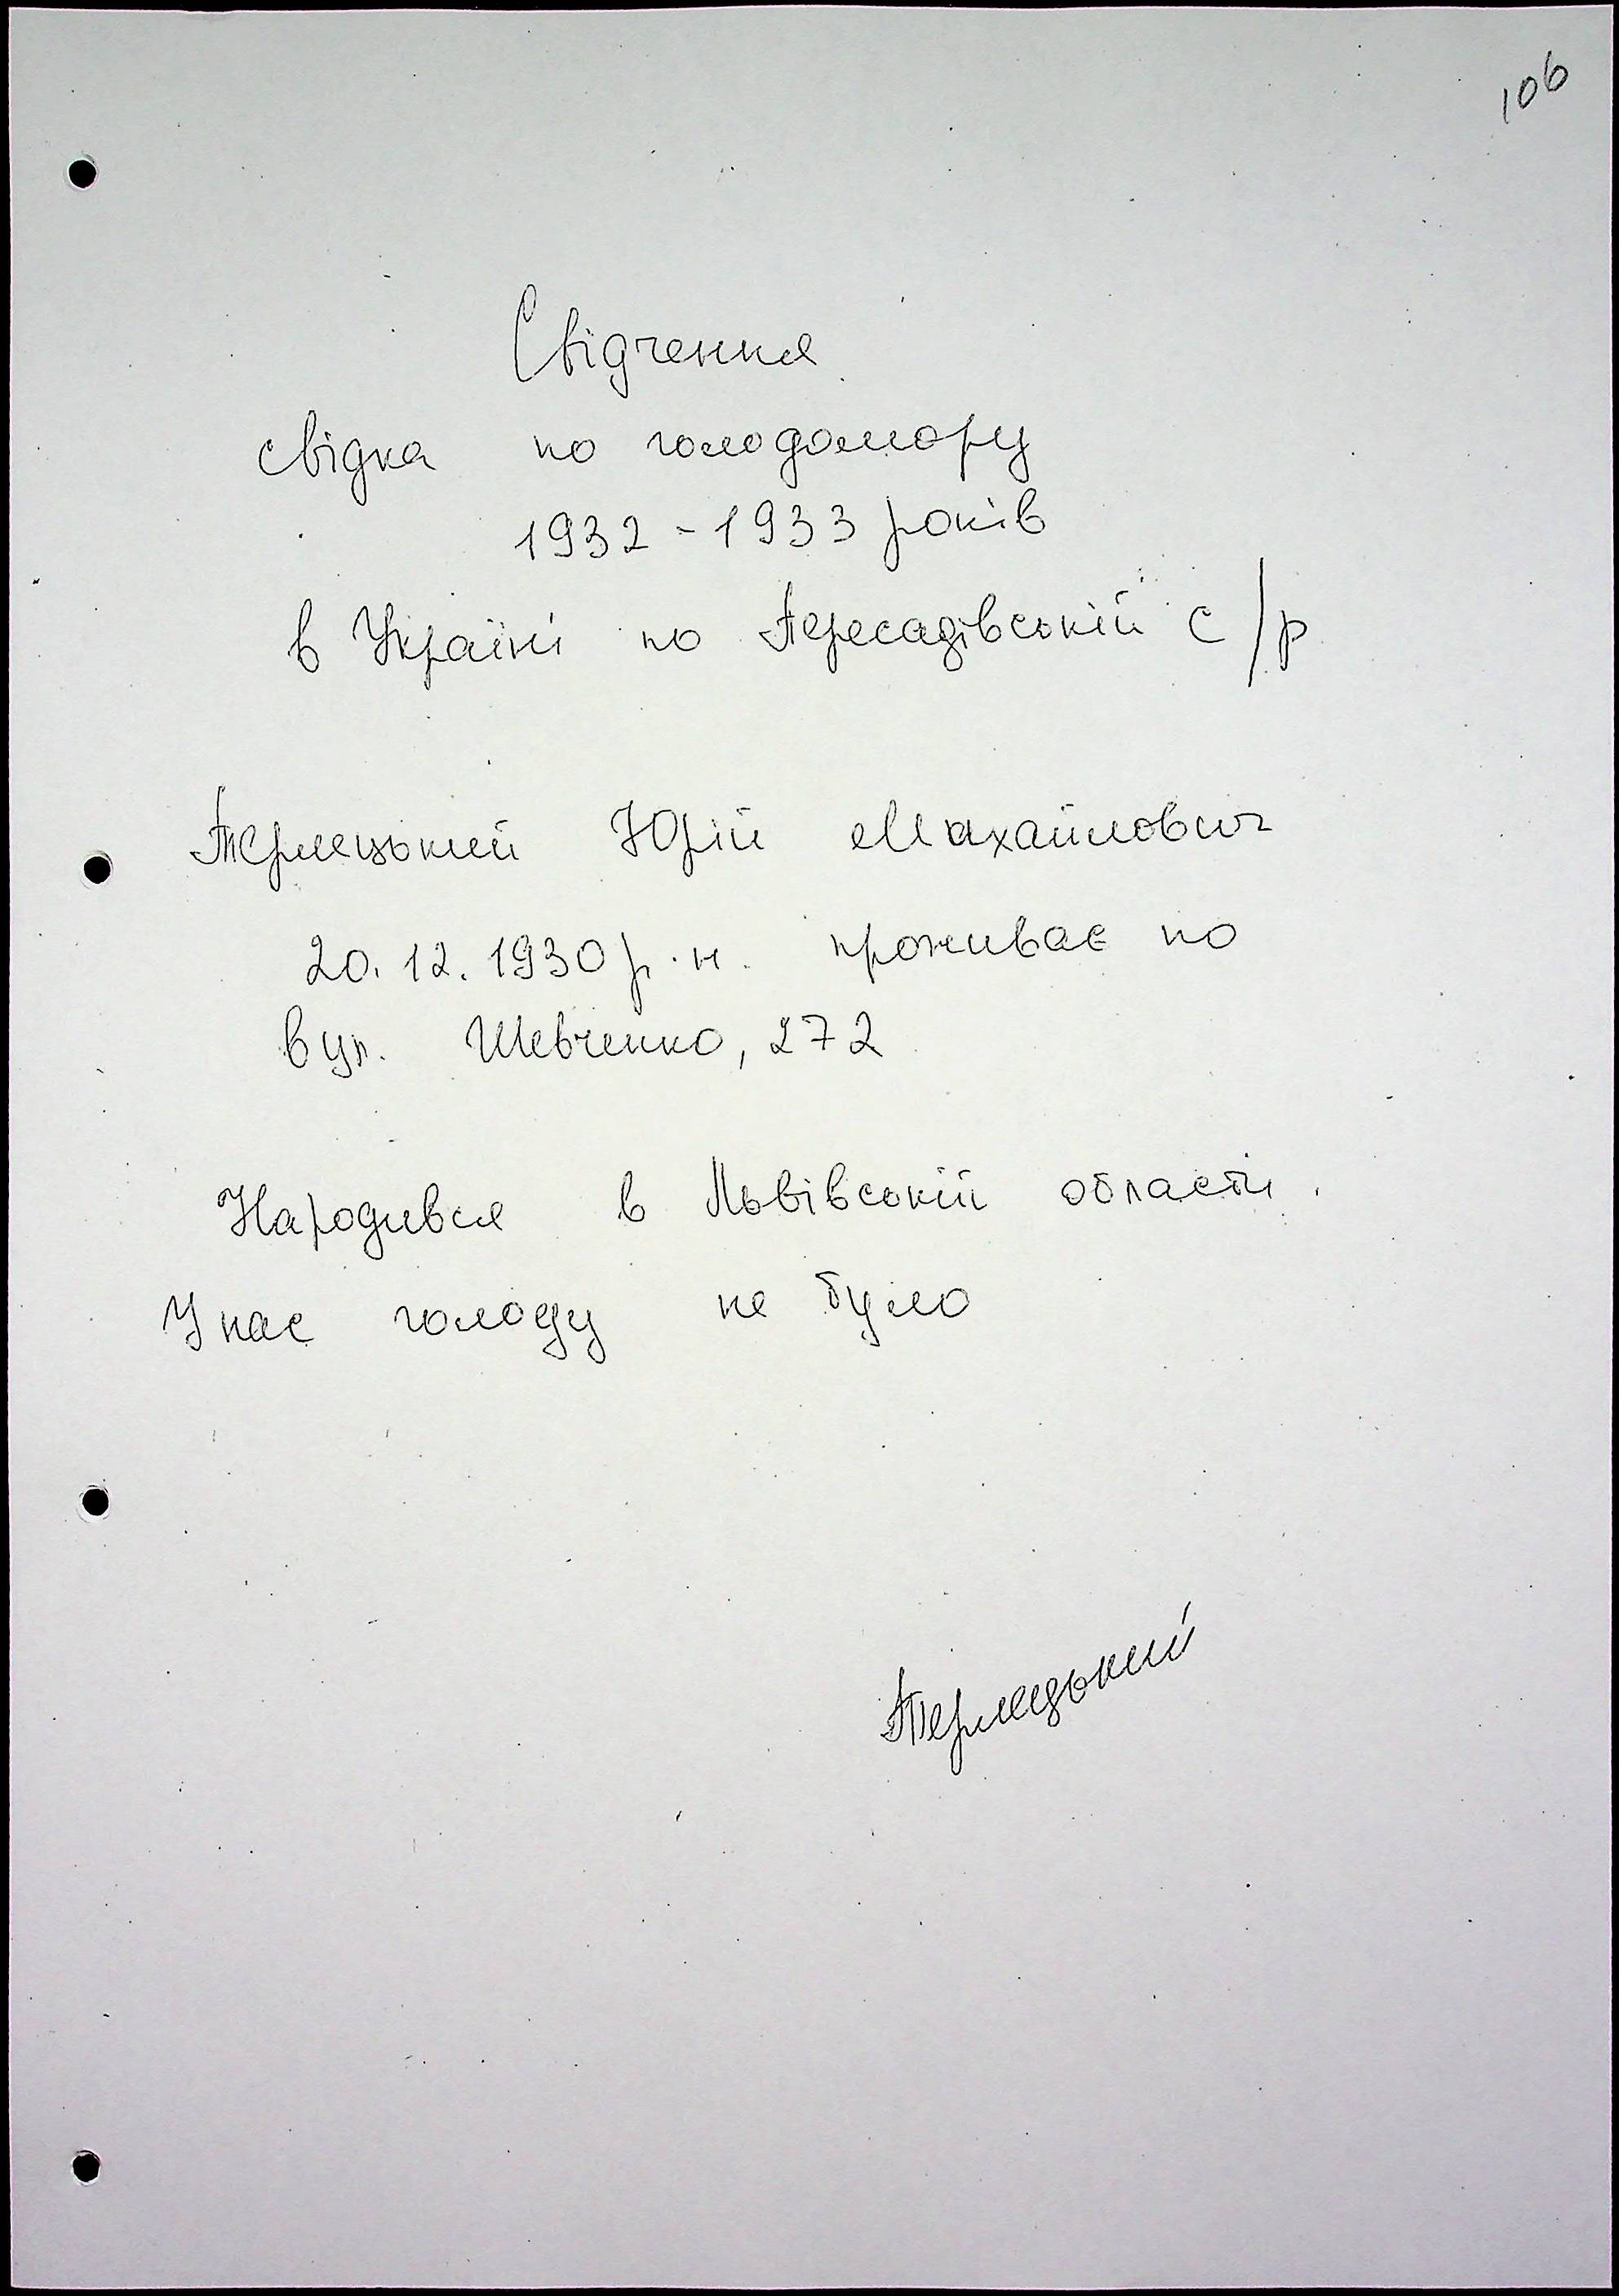 106
Свідчення
свідка по голодомору
1932-1933 років
в Україні по Пересадівській с/р
Терлецький Юрій Махайлович
20.12.1930 р.н. проживає по
вул. Шевченко, 272
Народився в Львівській області.
У нас голоду не було
Терлецький